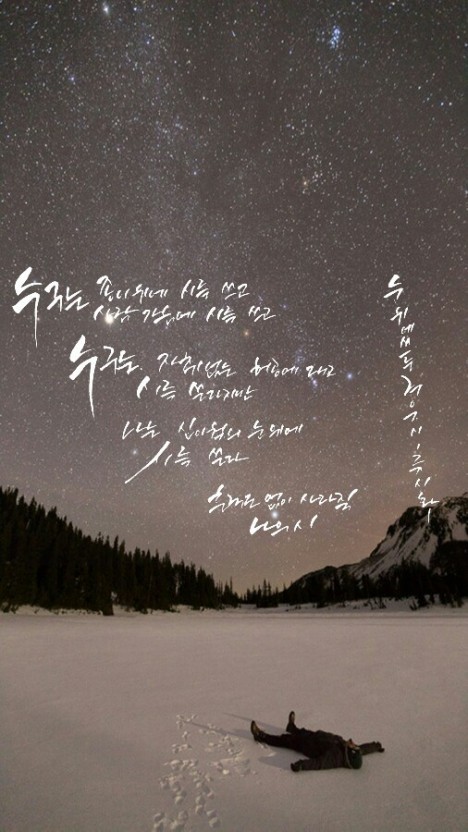 누구는 종이위에 시를 쓰고
사람 가슴에 시를 쓰고
누구는 자취없는 허공에 대고
시를 쓴다지만
나는 십이월의 눈 위에
시를 쓴다
흔적도 없이 사라질
나의 시
눈 위에 쓰는 겨울 시 류시화